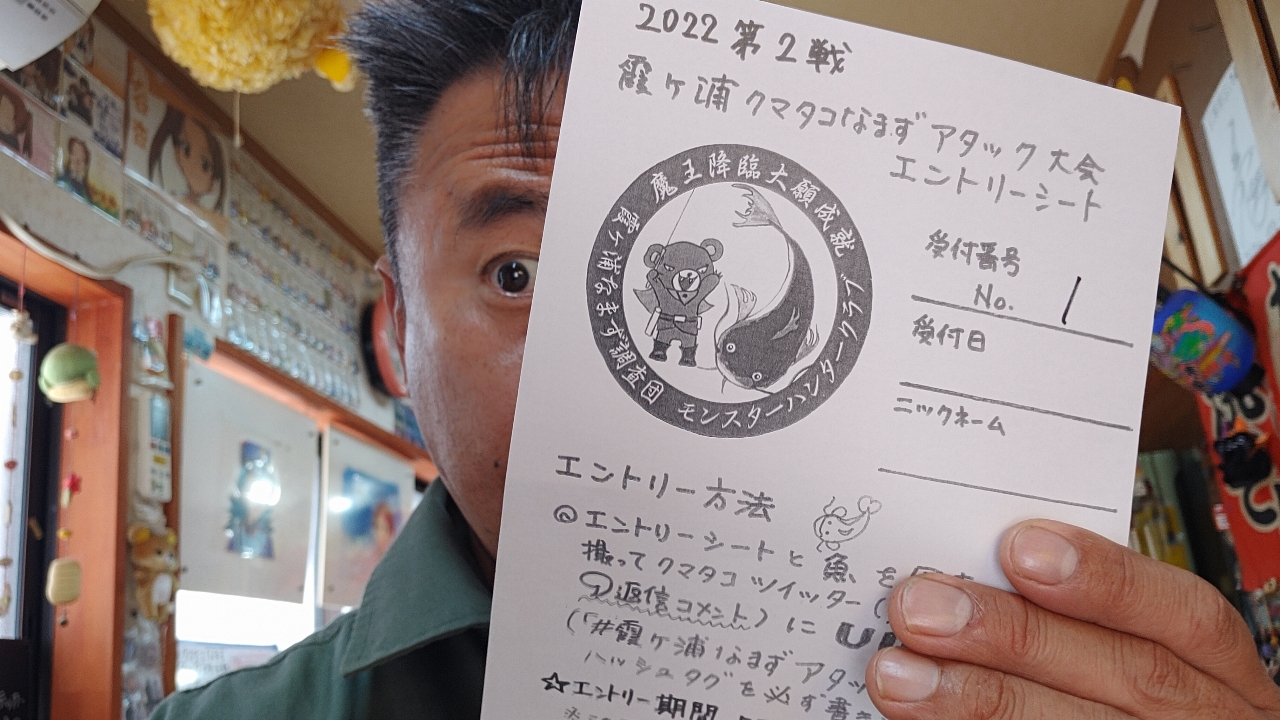 2022 第2戦
霞ヶ浦 クマタコなまず アタック大会
エントリーシート
魔王降臨大願成就
霞ヶ浦なまず調査団 モンスターハンタークラブ
受付番号
No. 1
受付日
ニックネーム
エントリー方法
エントリーシートと魚を
撮ってクマタコツイッター(
返信コメント)に
(「#霞ヶ浦なまずアタッ
ハッシュタグを必ず書き
☆エントリー期間